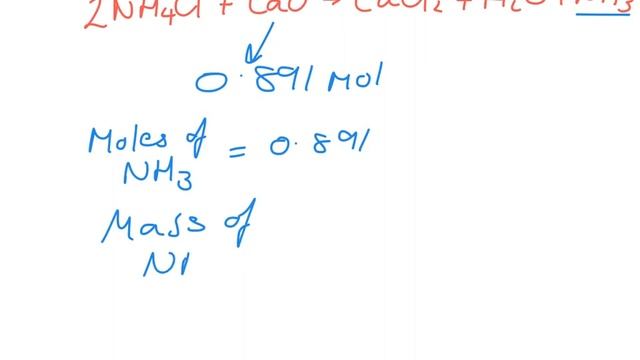 2NH4Cl + CaO → CaCl2 + H2O + NH3
0.891 Mol
Moles of
NH3 = 0.891
Mass of
N